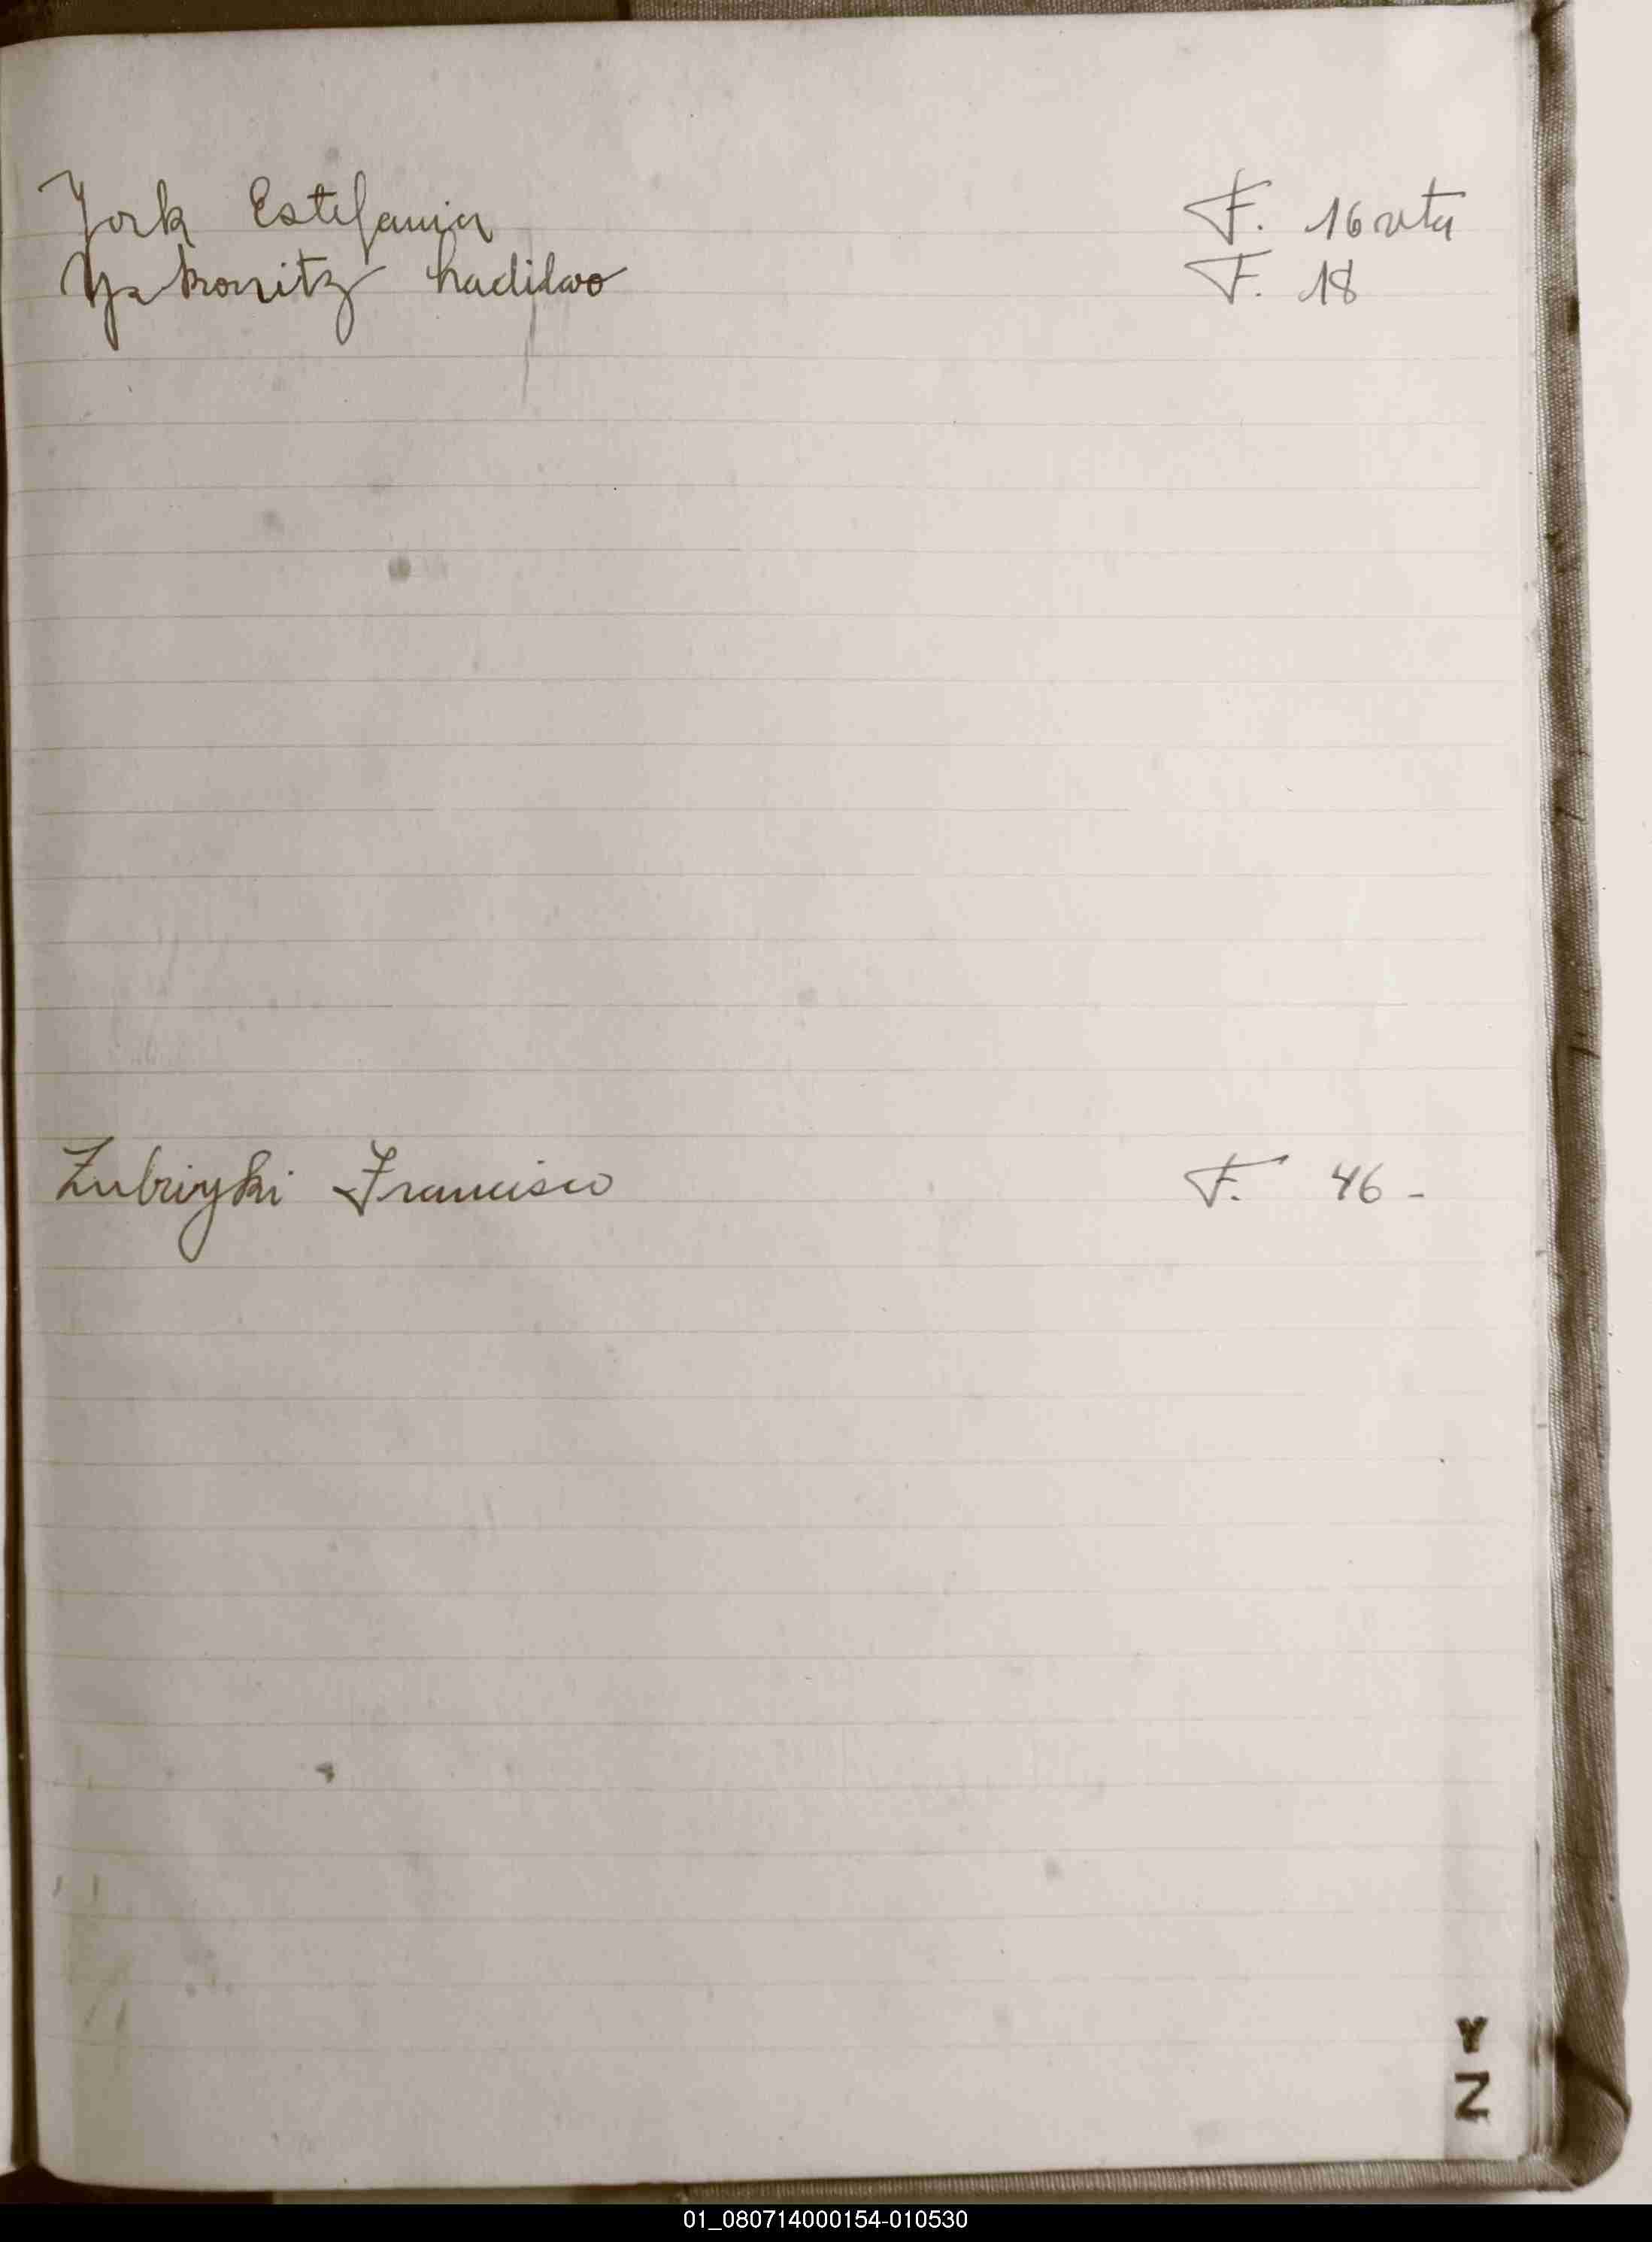 York Estefania F. 16 vta
Yakonitz Ladislao F. 18
Zubriyki Francisco F. 46 -
Y
Z
01_080714000154-010530